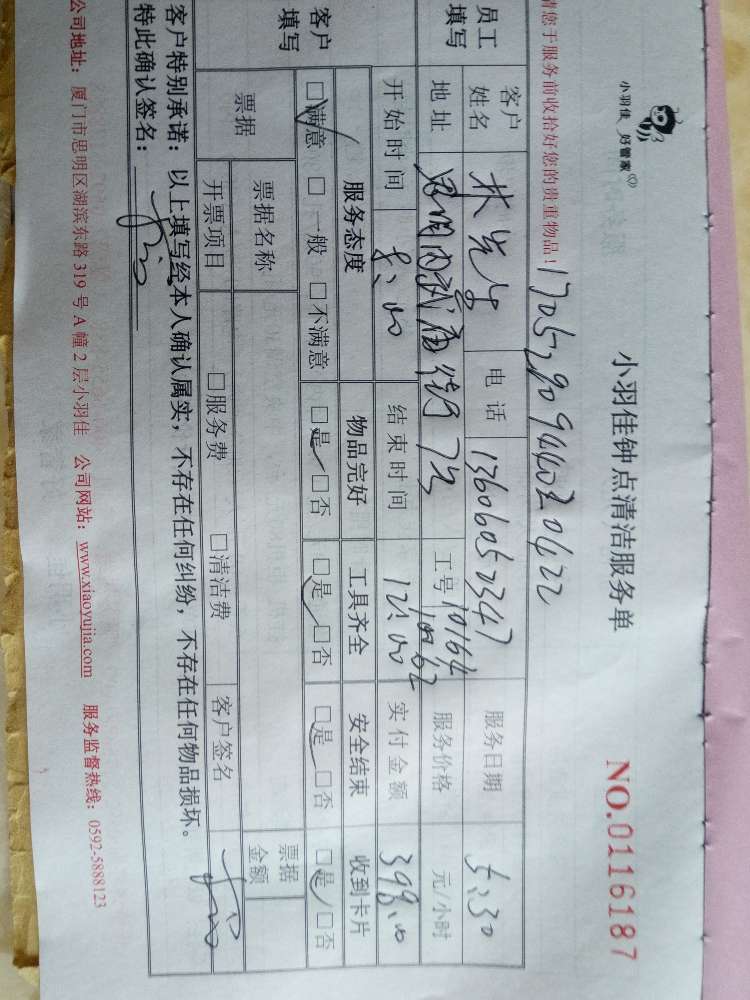 小羽佳 好管家
小羽佳钟点清洁服务单
NO.0116187
请您于服务前收拾好您的贵重物品!
员工填写
客户姓名 林先生 电话 13606052347 服务日期 5.30
地址 工号 10164 服务价格 元/小时
开始时间 8:00 结束时间 12:00 实付金额 398.00
客户填写
服务态度 物品完好 工具齐全 安全结束 收到卡片
□满意 □一般 □不满意 □是 □否 □是 □否 □是 □否 □是 □否
票据 票据名称 票据金额
开票项目 □服务费 □清洁费 客户签名
客户特别承诺：以上填写经本人确认属实，不存在任何纠纷，不存在任何物品损坏。
特此确认签名：
公司地址：厦门市思明区湖滨东路 319 号 A 幢 2 层小羽佳 公司网站：www.xiaoyujia.com 服务监督热线：0592-5888123